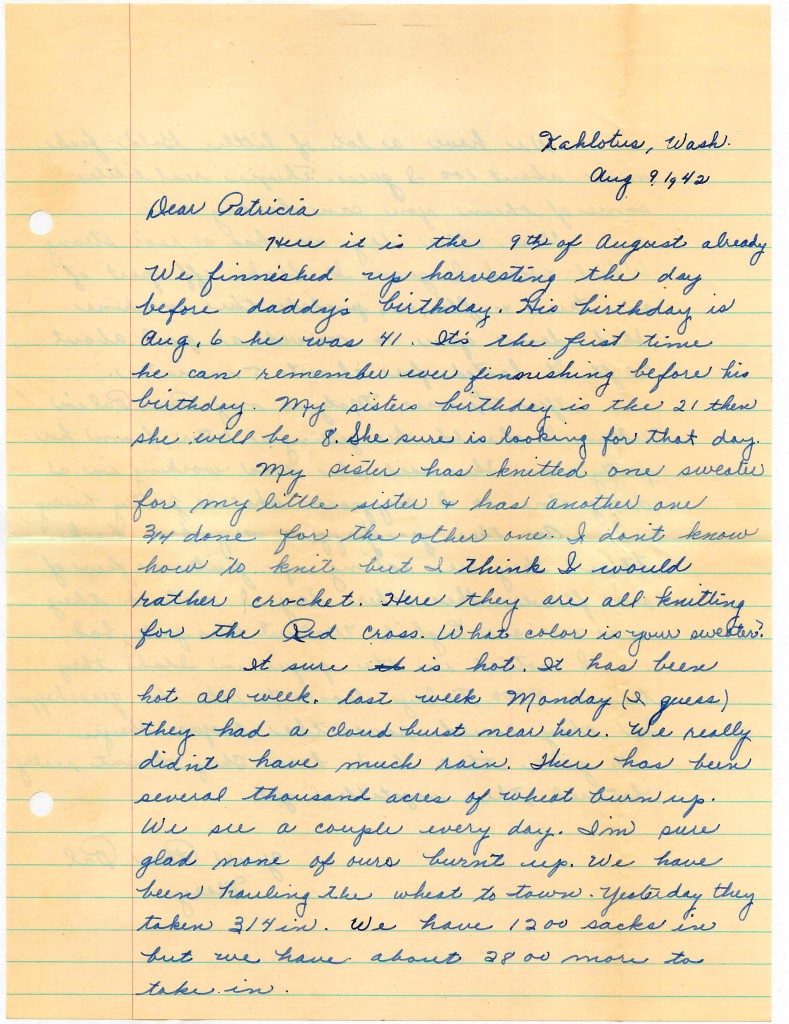 Kahlotus, Wash.
Aug 9, 1942
Dear Patricia
Here it is the 9th of August already
We finnished up harvesting the day
before daddy's birthday. His birthday is
Aug. 6 he was 41. It's the first time
he can remember ever finnishing before his
birthday. My sisters birthday is the 21 then
she will be 8. She sure is looking for that day.
My sister has knitted one sweater
for my little sister & has another one
3/4 done for the other one. I don't know
how to knit but I think I would
rather crocket. Here they are all knitting
for the Red Cross. What color is your sweater?
It sure is hot. It has been
hot all week. last week Monday (I guess)
they had a cloud burst near here. We really
didn't have much rain. There has been
several thousand acres of wheat burn up.
We see a couple every day. I'm sure
glad none of ours burnt up. We have
been hauling the wheat to town. Yesterday they
taken 314 in. We have 1200 sacks in
but we have about 2800 more to
take in.